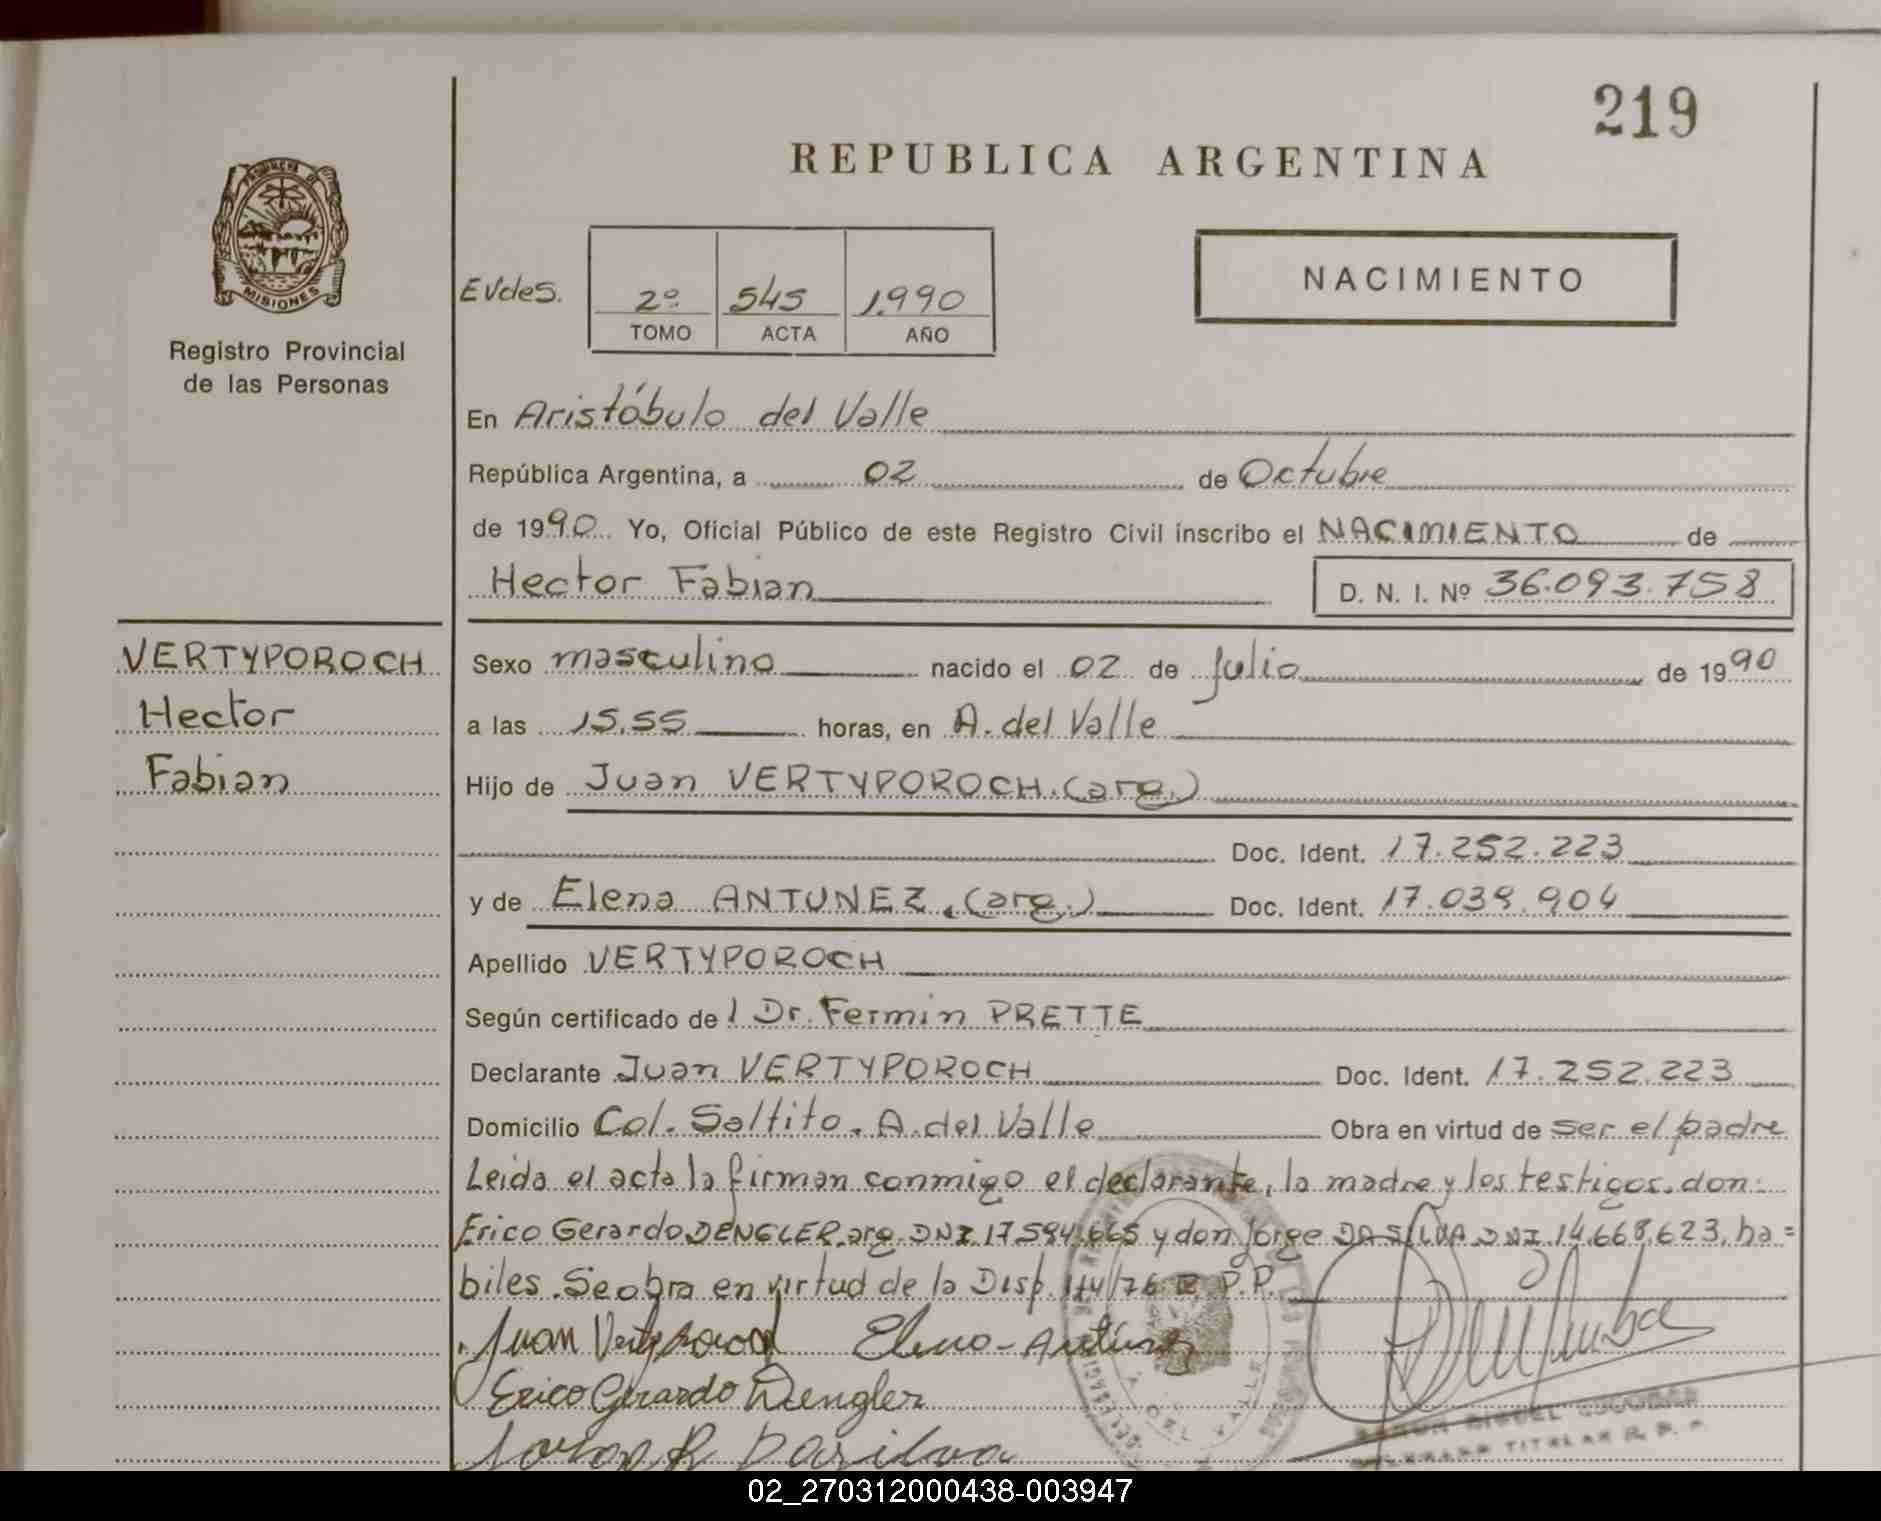 219
REPUBLICA ARGENTINA
PROVINCIA DE
MISIONES
Registro Provincial
de las Personas
EVdes.
2º 545 1.990
TOMO ACTA AÑO
NACIMIENTO
En Aristóbulo del Valle
República Argentina, a 02 de Octubre
de 1990 Yo, Oficial Público de este Registro Civil inscribo el NACIMIENTO de
Hector Fabian D. N. I. Nº 36.093.758
VERTYPOROCH
Hector
Fabian
Sexo masculino nacido el 02 de Julio de 1990
a las 15.55 horas, en A. del Valle
Hijo de Juan VERTYPOROCH. (arg.)
Doc. Ident. 17.252.223
y de Elena ANTUNEZ. (arg.) Doc. Ident. 17.039.904
Apellido VERTYPOROCH
Según certificado del Dr. Fermin PRETTE
Declarante Juan VERTYPOROCH Doc. Ident. 17.252.223
Domicilio Col. Saltito. A. del Valle Obra en virtud de ser el padre
Leida el acta la firman conmigo el declarante, la madre y los testigos. don:
Erico Gerardo DENGLER. arg. DNI 17.594.665 y don Jorge DA SILVA DNI 14.668.623, ha=
biles. Se obra en virtud de la Disp. 114/76 R.P.P.
Juan Vertyporoch Elena - Antunez
Erico Gerardo Dengler
R Dasilva
A. DEL VALLE
MIGUEL
TITULAR R. P. P.
02_270312000438-003947